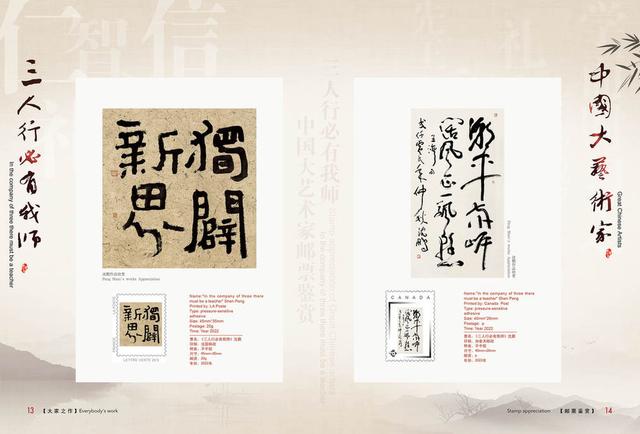 仁智信
三人行必有我师
In the company of three there must be a teacher
獨闢
新界
沈鹏作品欣赏
Peng Shen's works Appreciation
獨闢
新界
LETTRE VERTE 20 G
Name:"In the company of three there
must be a teacher" Shen Peng
Printed by: LA Poste
Type: pressure-sensitive
adhesive
Size: 45mm*35mm
Postage: 20g
Time: Year 2022
票名：《三人行必有我师》沈鹏
印制：法国邮政
材质：不干胶
尺寸：45mm×35mm
面值：20g
年份：2022年
13 【大家之作】Everybody's work
三人行必有我师
中国大艺术家邮票鉴赏
中國大藝術家
Great Chinese Artists
潮平兩岸
闊風正一帆懸
沈鹏作品欣赏
Peng Shen's works Appreciation
CANADA
Name:"In the company of three there
must be a teacher" Shen Peng
Printed by: Canada Post
Type: pressure-sensitive
adhesive
Size: 40mm*26mm
Postage: p
Time: Year 2022
票名：《三人行必有我师》沈鹏
印制：加拿大邮政
材质：不干胶
尺寸：40mm×26mm
面值：p
年份：2022年
Stamp appreciation 【邮票鉴赏】 14